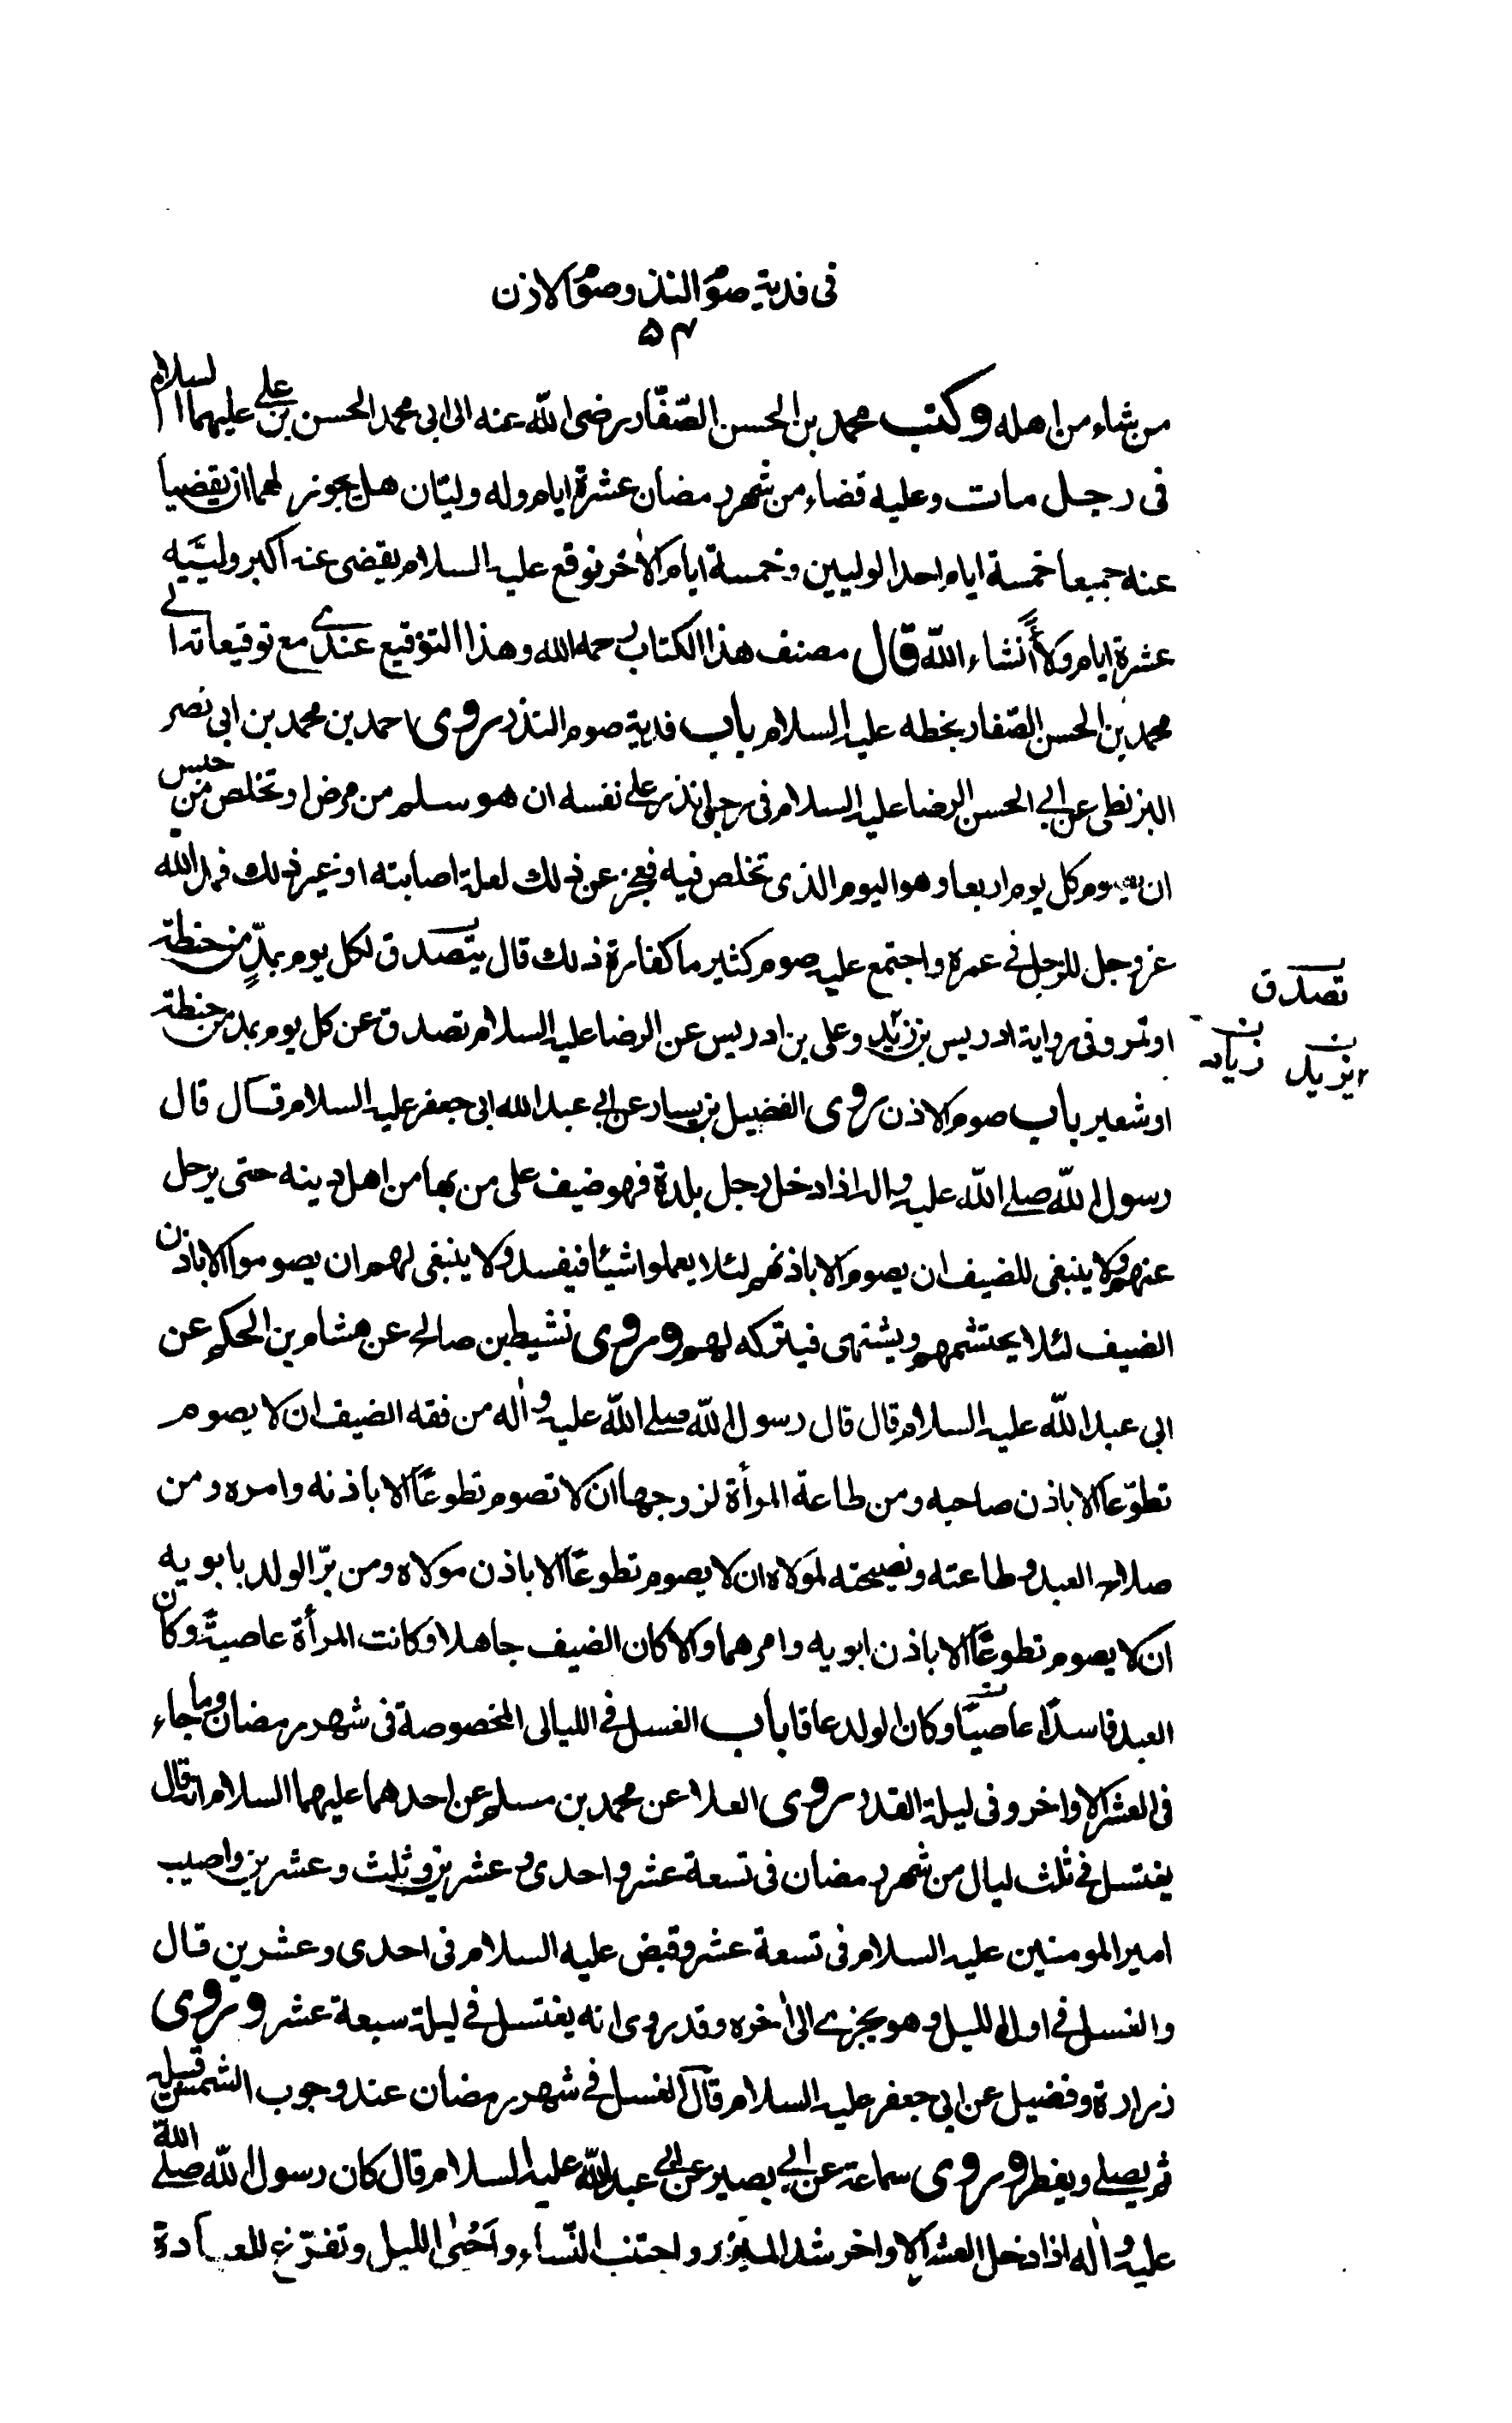 فى فدية صوم النذر وصوم الاذن
۵۴
من شاء من اهله وكتب محمد بن الحسن الصّفّار رضى الله عنه الى ابى محمد الحسن بن على عليهما السلام
فى رجل مات وعليه قضاء من شهر رمضان عشرة ايام وله وليّان هل يجوز لهما ان يقضيا
عنه جميعا خمسة ايام احد الوليين وخمسة ايام الاٰخر فوقع عليه السلام يقضى عنه اكبر ولييّه
عشرة ايام ولاءً انشاء اللّه قال مصنف هذا الكتاب رحمه الله وهذا التوقيع عندى مع توقيعاته الى
محمد بن الحسن الصّفار بخطه عليه السلام باب فدية صوم النذر روى احمد بن محمد بن ابى نصر
البزنطى عن ابى الحسن الرضا عليه السلام فى رجل نذر على نفسه ان هو سلم من مرض او تخلص من حبس
ان يصوم كل يوم اربعا وهو اليوم الذى تخلص فيه فعجز عن ذلك لعلة اصابته او غير ذلك فمد الله
عز وجل للرجل فى عمره واجتمع عليه صوم كثير ما كفارة ذلك قال يتصدق لكل يوم بمدٍّ من حنطة
تصدق
او تمر وفى رواية ادريس بن زيد وعلى بن ادريس عن الرضا عليه السلام تصدق عن كل يوم بمد من حنطة
زياد يزيد
او شعير باب صوم الاذن روى الفضيل بن يسار عن ابى عبد الله ابى جعفر عليه السلام قال قال
رسول اللّه صلى اللّه عليه واله اذا دخل رجل بلدة فهو ضيف على من بها من اهل دينه حتى يرحل
عنهم ولا ينبغى للضيف ان يصوم الا باذنهم لئلا يعملوا شيئا فيفسد ولا ينبغى لهم ان يصوموا الا باذن
الضيف لئلا يحتشمهم ويشتهى فيتركه لهم وروى نشيط بن صالح عن هشام بن الحكم عن
ابى عبد اللّه عليه السلام قال قال رسول اللّه صلى اللّه عليه واٰله من فقه الضيف ان لا يصوم
تطوّعا الا باذن صاحبه ومن طاعة المرأة لزوجها ان لا تصوم تطوعًا الا باذنه وامره ومن
صلاح العبد وطاعته ونصيحته لمولاه ان لا يصوم تطوعًا الا باذن مولاه ومن برّ الولد بابويه
ان لا يصوم تطوعًا الا باذن ابويه وامرهما والا كان الضيف جاهلا وكانت المرأة عاصيةً وكان
العبد فاسدًا عاصيًا وكان الولد عاقا باب الغسل فى الليالى المخصوصة فى شهر رمضان وما جاء
فى العشر الاواخر وفى ليلة القدر روى العلا عن محمد بن مسلم عن احدهما عليهما السلام انه قال
يغتسل فى ثلث ليال من شهر رمضان فى تسعة عشر واحدى وعشرين وثلث وعشرين واصيب
امير المومنين عليه السلام فى تسعة عشر وقبض عليه السلام فى احدى وعشرين قال
والغسل فى اول الليل وهو يجزى الى اٰخره وقد روى انه يغتسل فى ليلة سبعة عشر وروى
زرارة وفضيل عن ابى جعفر عليه السلام قال الغسل فى شهر رمضان عند وجوب الشمس قبيله
ثم يصلى ويفطر وروى سماعة عن ابى بصير عن ابى عبد اللّه عليه السلام قال كان رسول اللّه صلى الله
عليه واٰله اذا دخل العشر الاواخر شد الميزر واجتنب النّساء واَحْيٰى الليل وتفرّغ للعبادة